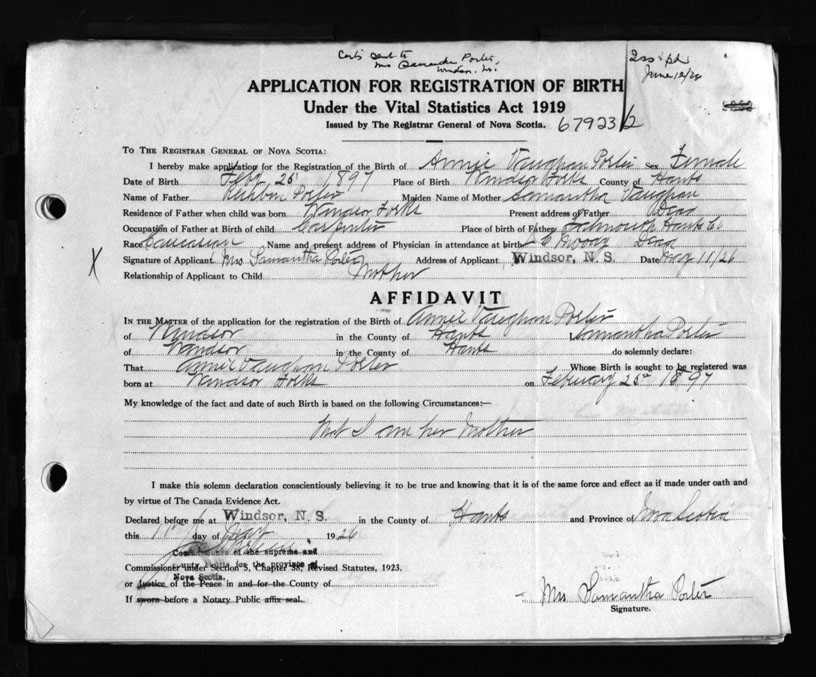 Mrs Samantha Porter
Windsor, N.S.
June 12/26
APPLICATION FOR REGISTRATION OF BIRTH
Under the Vital Statistics Act 1919
Issued by The Registrar General of Nova Scotia. 67923612
TO THE REGISTRAR GENERAL OF NOVA SCOTIA:
I hereby make application for the Registration of the Birth of Annie Vaughan Porter Sex Female
Date of Birth Feby 25 1897 Place of Birth Windsor Forks County of Hants
Name of Father Porter Maiden Name of Mother Samantha Vaughan
Residence of Father when child was born Windsor Forks Present address of Father Dead
Occupation of Father at Birth of child Carpenter Place of birth of Father Falmouth Hants Co
Race Caucasian Name and present address of Physician in attendance at birth Moody Dead
X Signature of Applicant Mrs Samantha Porter Address of Applicant Windsor, N. S. Date May 11/26
Relationship of Applicant to Child Mother
AFFIDAVIT
IN THE MATTER of the application for the registration of the Birth of Annie Vaughan Porter
of Windsor in the County of Hants I, Samantha Porter
of Windsor in the County of Hants do solemnly declare:
That Annie Vaughan Porter Whose Birth is sought to be registered was
born at Windsor Forks on February 25th 1897
My knowledge of the fact and date of such Birth is based on the following Circumstances:—
That I am her Mother
I make this solemn declaration conscientiously believing it to be true and knowing that it is of the same force and effect as if made under oath and
by virtue of The Canada Evidence Act.
Declared before me at Windsor, N. S. in the County of Hants and Province of Nova Scotia
this 11 day of May 1926
Commissioner of the supreme and
county courts for the province of
Commissioner under Section 3, Chapter 38, Revised Statutes, 1923.
Nova Scotia.
or Justice of the Peace in and for the County of
If sworn before a Notary Public affix seal.
Mrs Samantha Porter
Signature.